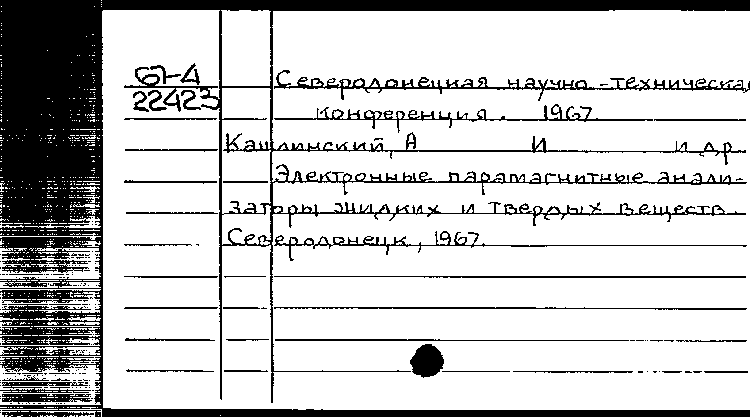 67-4
22423
Северодонецкая научно-техническая
конференция. 1967.
Кашлинский, А И и др
Электронные парамагнитные анали-
заторы жидких и твердых веществ.
Северодонецк, 1967.